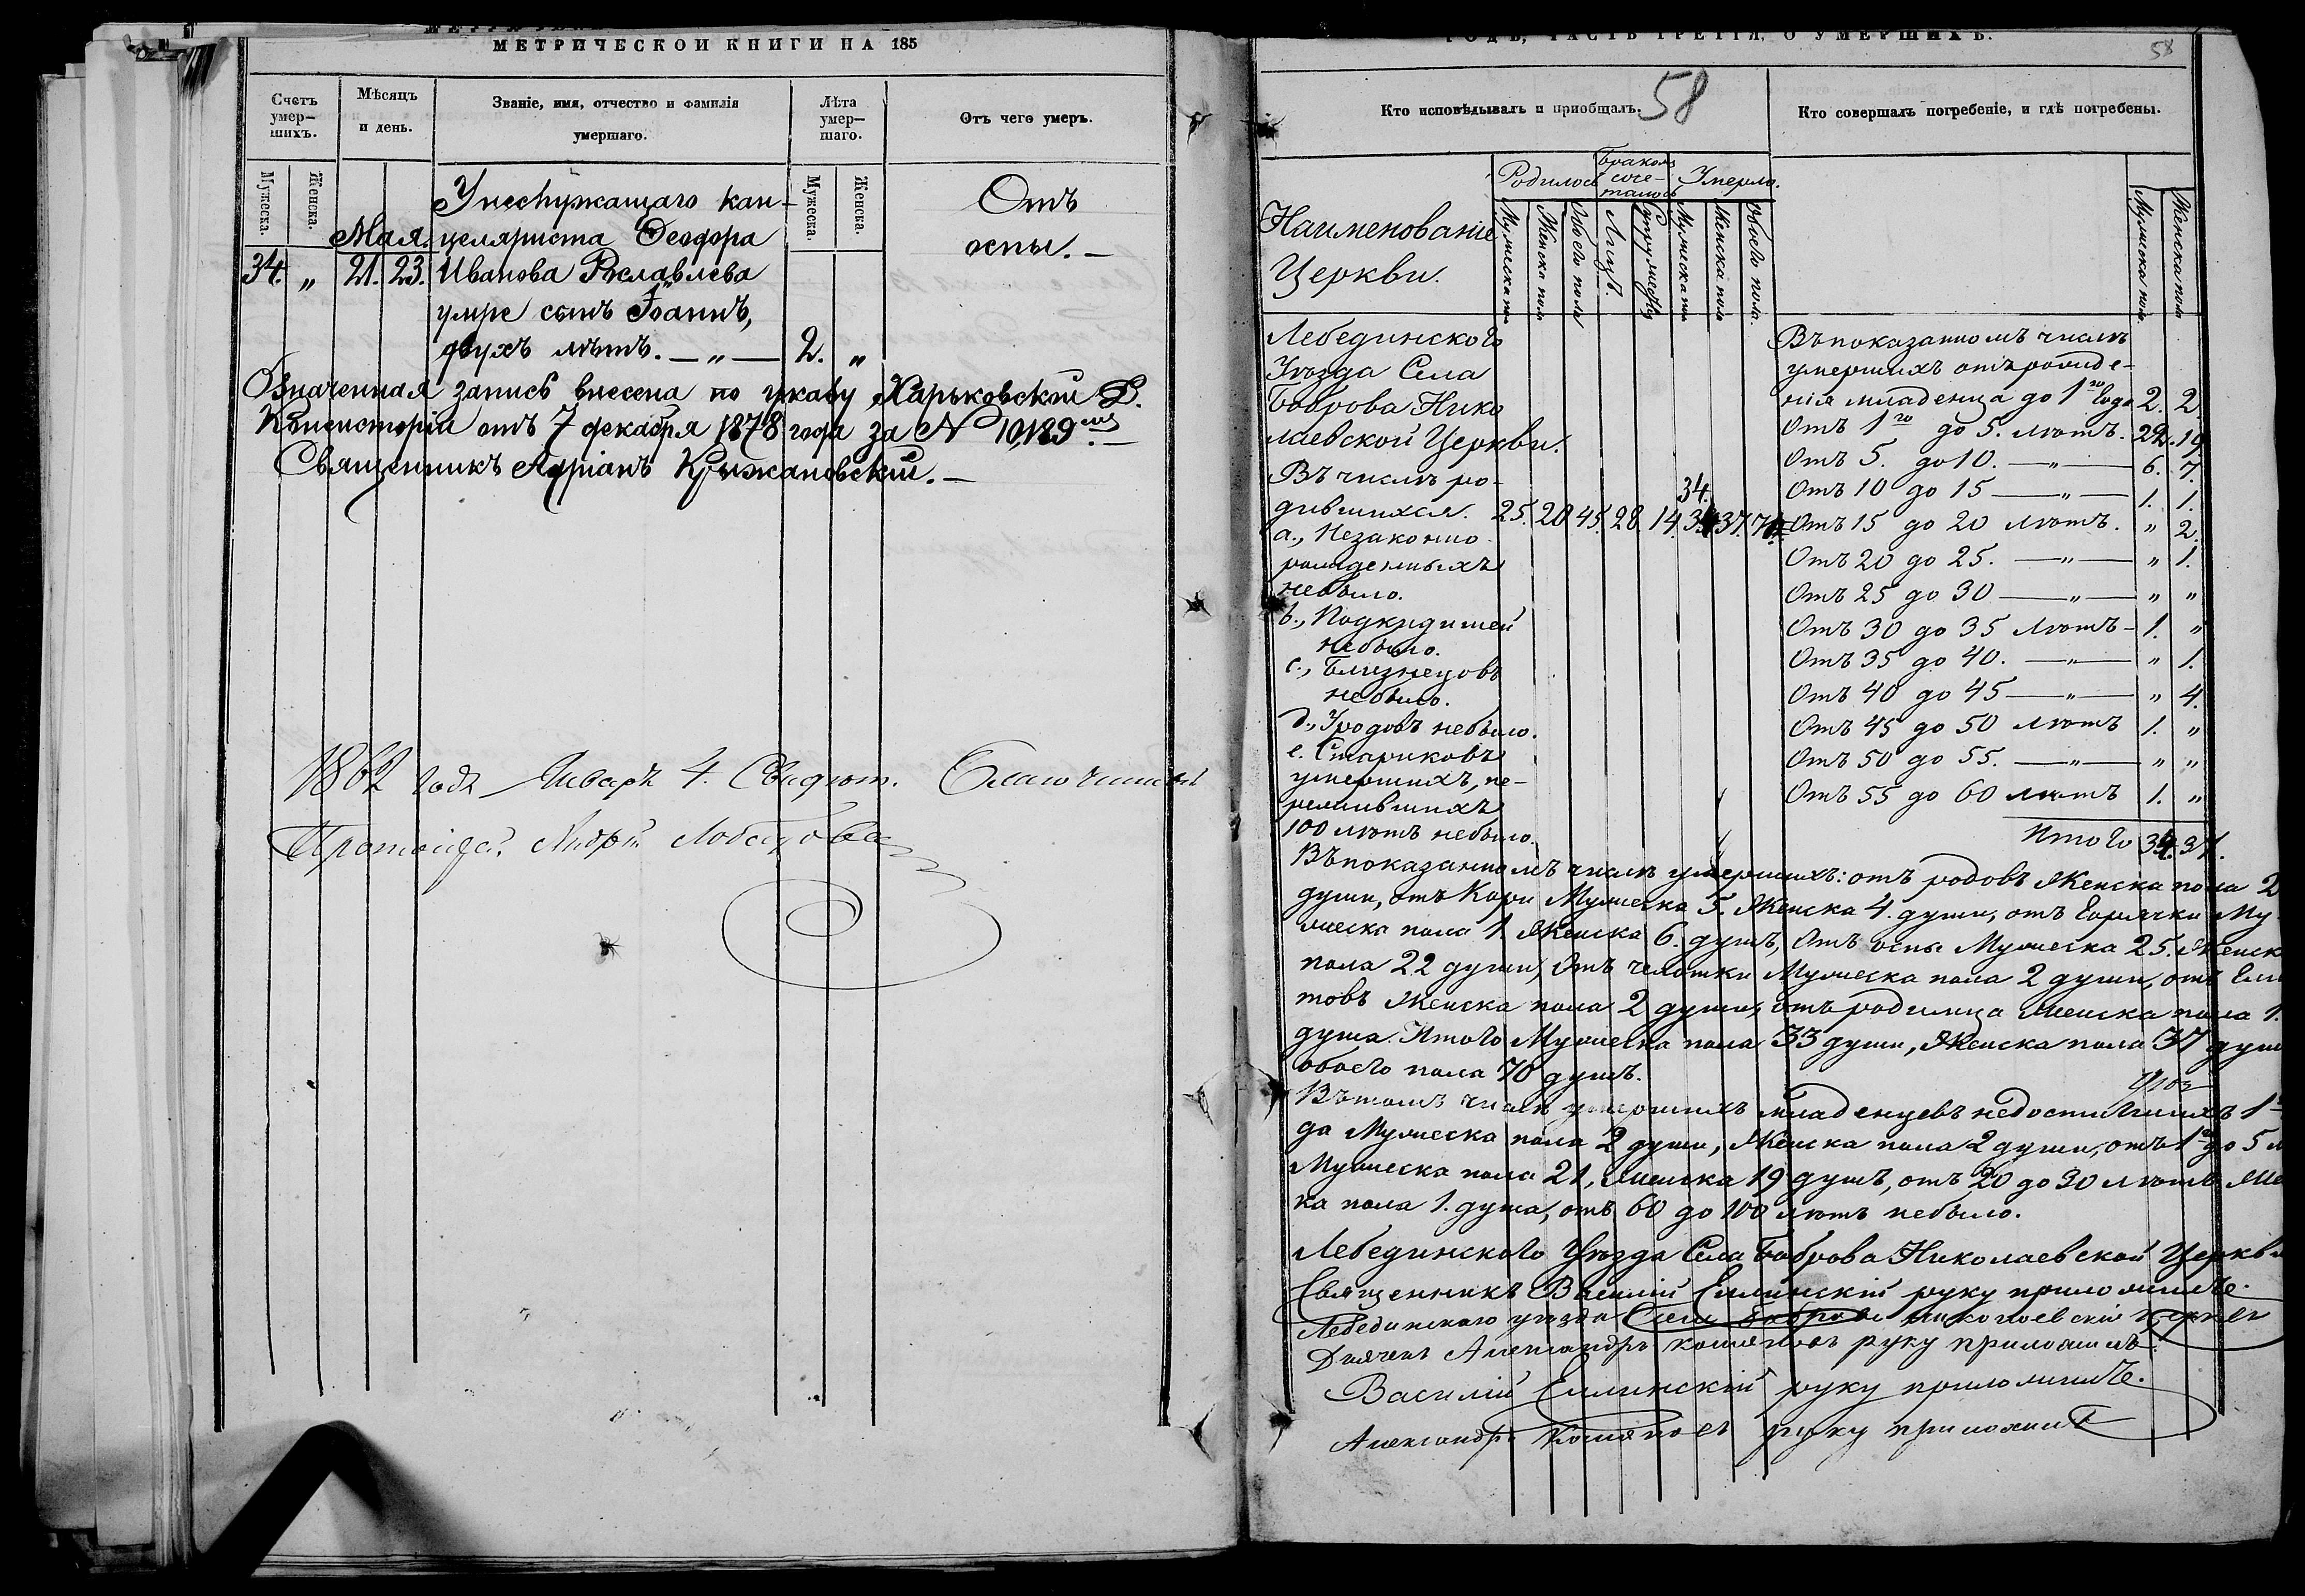 МЕТРИЧЕСКОЙ КНИГИ НА 185
Счетъ умер-шихъ.
Мѣсяцъ и день.
Званіе, имя, отчество и фамилія умершаго.
Лѣта умер-шаго.
Отъ чего умеръ.
Мужеска.
Женска.
Мужеска.
Женска.
Унеслужащаго кан-
Мая. целяриста Ѳеодора
34. " 21. 23. Иванова Рославлева
умре сынъ Іоаннъ,
двухъ лѣтъ. — " — 2. "
Отъ
оспы. —
Означенная запись внесена по указу Харьковской Д.
Консисторіи отъ 7 декабря 1878 года за № 10189
Священникъ Адріанъ Крыжановскій. —
1862 года Января 4. Свидѣт. Благочинный
Протоіерей Андрей
ГОДЪ, ЧАСТЬ ТРЕТІЯ, О УМЕРШИХЪ.
58
Кто исповѣдывалъ и пріобщалъ.
58
Кто совершалъ погребеніе, и гдѣ погребены.
Наименованіе
Церкви.
Родилось
Бракомъ соче-талось
Умерло.
Мужеска пол
Женска пола
Обоего пола
Лицъ.
Супружеству
Мужеска пол
Женска пола
Обоего пола.
Мужеска пола.
Женска пола
Лебединского
Уѣзда Села
Боброва Нико
лаевской Церкви.
Въ числѣ ро-
34.
дившихся. 25. 20 45. 28. 14. 34 37. 71.
а., Незаконно
рожденныхъ
небыло.
b., Подкидишей
небыло.
с., Близнецовъ
небыло.
d., Уродовъ небыло.
е. Стариковъ
умершихъ, пе-
режившихъ
100 лѣтъ небыло.
Въ показанномъ числѣ
умершихъ отъ рожде-
нія младенца до 1го года 2. 2.
Отъ 1го до 5. лѣтъ. 22. 19.
Отъ 5. до 10. — " — 6. 7.
Отъ 10 до 15 — " — 1. 1.
Отъ 15 до 20 лѣтъ. " 2.
Отъ 20 до 25. — " — " 1.
Отъ 25 до 30 — " — " "
Отъ 30 до 35 лѣтъ - 1. "
Отъ 35 до 40. — " — " 1.
Отъ 40 до 45 — " — " 4.
Отъ 45 до 50 лѣтъ 1. "
Отъ 50 до 55. — " — " "
Отъ 55 до 60 лѣтъ 1. "
Итого 34. 37.
Въ показанномъ числѣ умершихъ: отъ родовъ Женска пола 2
души, отъ Кори Мужеска 5. Женска 4. души, отъ Горячки Му-
жеска пола 1. Женска 6. душъ, Отъ оспы Мужеска 25. Женск
пола 22 души, Отъ чахотки Мужеска пола 2 души, отъ Глис
товъ Женска пола 2 души, отъ родимца Женска пола 1.
душа. Итого Мужеска пола 33 души, Женска пола 37 душ
обоего пола 70 душъ.
Въ томъ числѣ умершихъ младенцевъ недостигшихъ 1
да Мужеска пола 2 души, Женска пола 2 души, отъ 1го до 5 л
Мужеска пола 21, Женска 19 душъ, отъ 20 до 30 лѣтъ Же
ка пола 1. душа, отъ 60 до 100 лѣтъ небыло.
Лебединского Уѣзда Села Боброва Николаевской Церкви
Священникъ Василій Еллинскій руку приложилъ.
Лебединского уѣзда Села Боброва николаевской церкви
Дьячекъ Александръ руку приложилъ
Василій Еллинскій руку приложилъ.
Александръ руку приложилъ